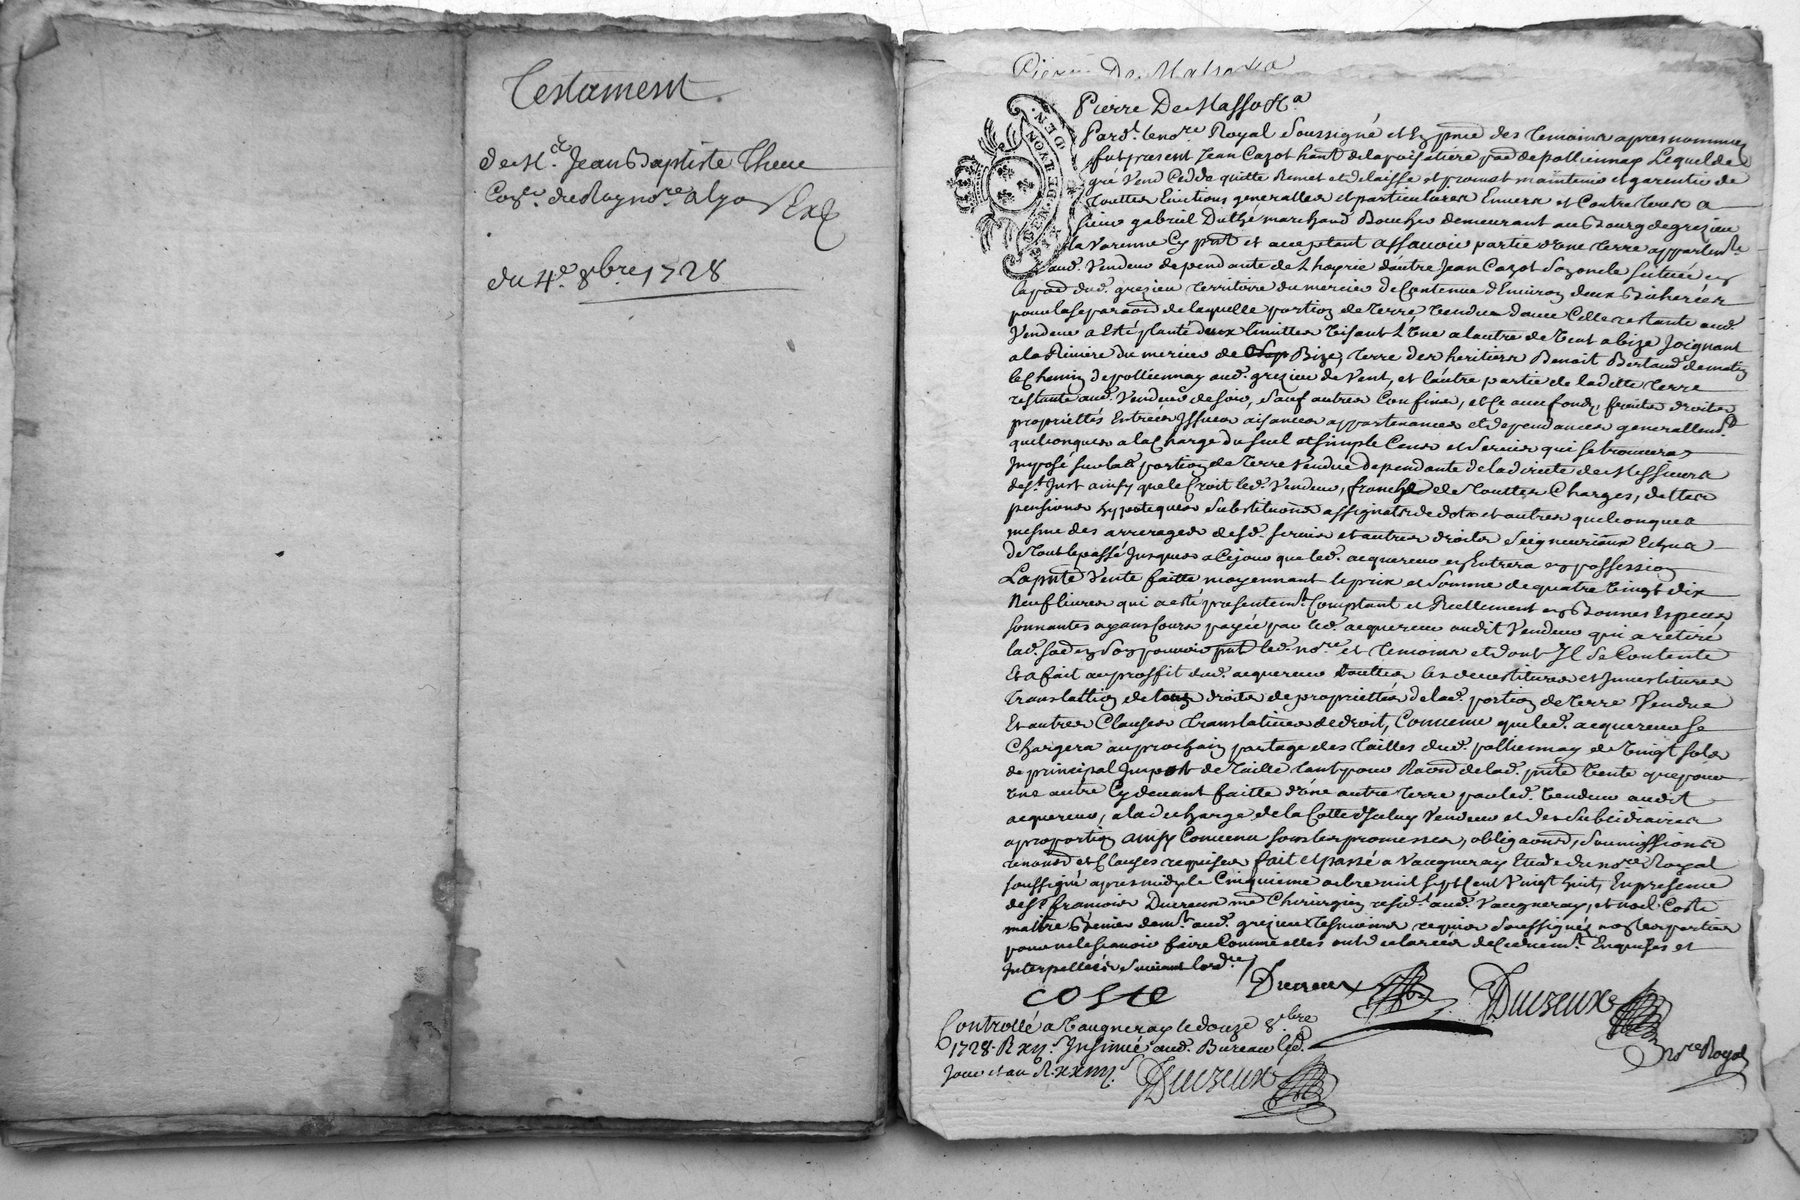 Testament
de Me. Jean Baptiste Theve
du 4e. 8bre 1728
Pierre De Masso
Pierre De Masso
Pardt. le nore Royal soussigné et En pnce des temoins apres nommes
fut present Jean Cazot hant. de la paroisse de polliennay Lequel de
gré Vend Cedde quitte Remet et delaisse et promet maintenir et garentir de
touttes Evictions generalles et particulieres Envers et Contre tous a
sieur gabriel Duthé marchand Boucher demeurant au Bourg de grezieu
la Varenne Cy pnt et acceptant assavoir partie d'une terre appartente
aud. Vendeur dependante de L'hoyrie d'autre Jean Cazot son oncle scituée en
la pard dud. grezieu territoire du mercier de Contenue d'Environ deux Bicherées
pour la separaon de laquelle portion de terre vendue d'avec Celle restante aud.
Vendeur a Esté planté deux limittes visant L'une a l'autre de vent a bize Joignant
a la Riviere du mercier de Bize, terre des heritiers Benoit Bertaud de matin
le Chemin de pollionnay aud. grezieu de Vent, et l'autre partie de laditte terre
restante aud. Vendeur de soir, sauf autres Confins, et Ce avec fondz, fruits droits
proprietés Entrées Issues aisances appartenances et dependances generallemt.
quelconques a la Charge du seul et simple Cens et Servis qui se trouvera
Imposé sur lad. portion de terre Vendue dependante de la directe de Messieurs
de St. Just ainsy que le Croit led. Vendeur, franche de touttes Charges, dettes
pensions hypoteques substitutions assignats de dots et autres quelconques
mesme des arrerages desd. servis et autres droits seigneuriaux Echus
de tout le passé Jusques a Ce jour que led. acquereur en Entrera en possession
La pnte Vente faitte moyennant le prix et somme de quatre vingt dix
Neuf livres qui a esté presentemt. Comptant et Reellement en Bonnes Especes
sonnantes ayans Cours payée par led. acquereur audit Vendeur qui a retiré
en son pouvoir pnt led. nore et temoins et dont Il se Contente
Et a fait au proffit dud. acquereur touttes les devestitures et Investitures
translation de tous droits de proprietés de lad. portion de terre Vendue
Et autres Clauses translatives de droit, Convenu que led. acquereur se
Chargera au prochain partage des tailles dud. pollionnay de vingt sols
de principal Impost de taille tant pour Raison de lad. pnte vente que pour
une autre Cy devant faitte d'une autre terre par led. vendeur audit
acquereur, a la decharge de la Cotte d'Iceluy Vendeur et des subcidiaires
a proportion ainsy Convenu sous les promesses, obligaons, soumissions
renonons et Clauses requises fait et passé a Vaugneray Etude du nore Royal
soussigné apres midy le Cinquieme octbre mil sept Cent Vingt huit, En presence
de sr. françois Ducreux me Chirurgien residt. aud. Vaugneray, et noel Coste
maitre demt. aud. grezieu temoins requis soussignés non les parties
pour ne le scavoir faire Comme elles ont declarées de Ce duemt. Enquises et
Interpellées suivant l'ordce
coste Ducreux Ducreux
nore Royal
Controllé a Vaugneray le douze 8bre
1728. R xijs. Insinué aud. Bureau led.
Jour et an R.
Ducreux